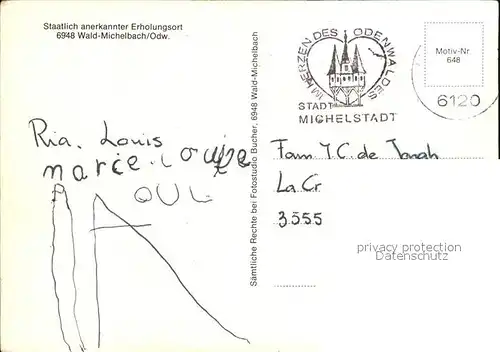 Staatlich anerkannter Erholungsort
6948 Wald-Michelbach/Odw.
Sämtliche Rechte bei Fotostudio Bucher, 6948 Wald-Michelbach
IM HERZEN DES ODENWALDES
STADT
MICHELSTADT
Motiv-Nr.
648
6120
Ria. Louis
Marie-Louise
Fam J.C. de
La Cr
3555
privacy protection
Datenschutz